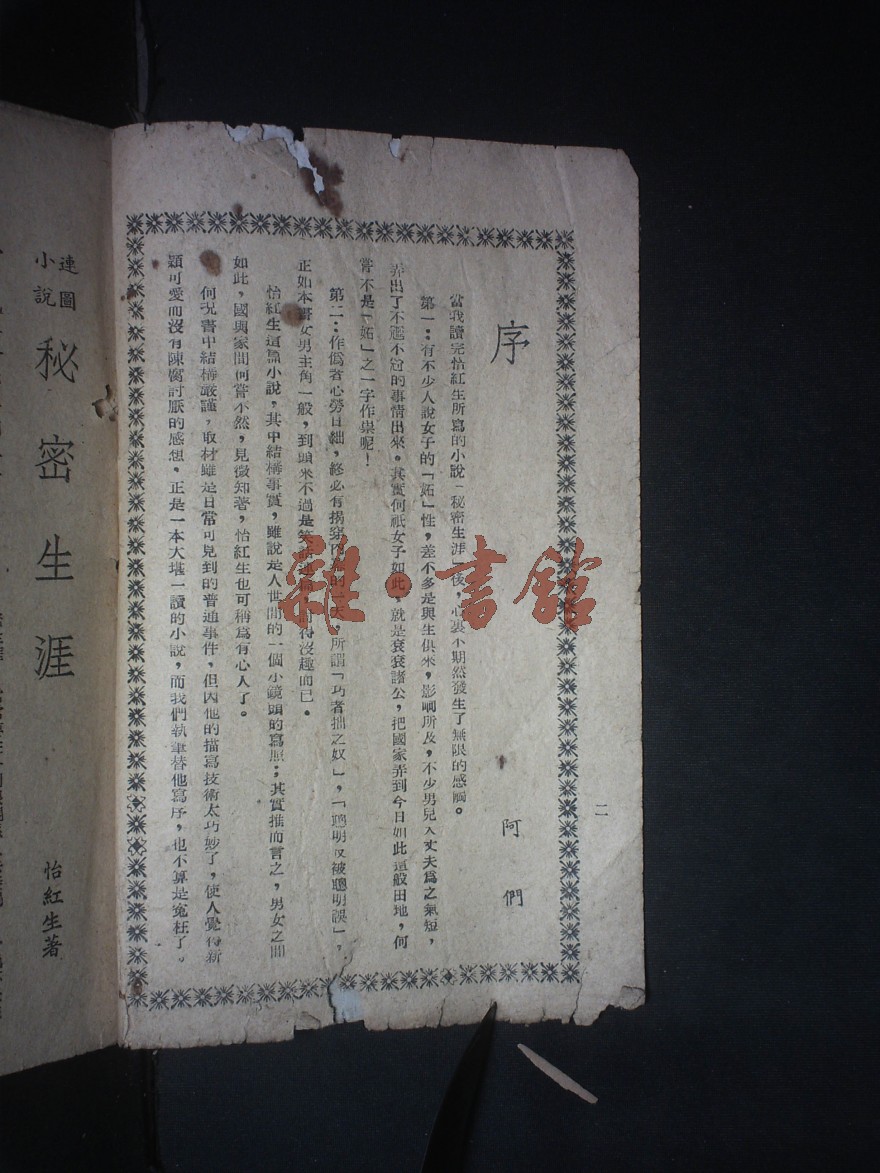 二
序
阿們
當我讀完怡紅生所寫的小說「秘密生涯」後，心裏不期然發生了無限的感觸。
第一：有不少人說女子的「妬」性，差不多是與生俱來，影响所及，不少男兒大丈夫為之氣短，
弄出了不尷不尬的事情出來。其實何祇女子如此，就是袞袞諸公，把國家弄到今日如此這般田地，何
嘗不是「妬」之一字作祟呢！
第二：作僞者心勞日絀，終必有揭穿內的一天，所謂「巧者拙之奴」，「聰明反被聰明誤」，
正如本書女男主角一般，到頭來不過是笑話，得沒趣而已。
怡紅生這篇小說，其中結構事實，雖說是人世間的一個小鏡頭的寫照；其實推而言之，男女之間
如此，國與家間何嘗不然，見微知著，怡紅生也可稱為有心人了。
何况書中結構嚴謹，取材雖是日常可見到的普通事件，但因他的描寫技術太巧妙了，使人覺得新
穎可愛而沒有陳腐討厭的感想。正是一本大堪一讀的小說，而我們執筆替他寫序，也不算是寃枉了。
連圖
小說
秘密生涯
怡紅生著
雜·書館